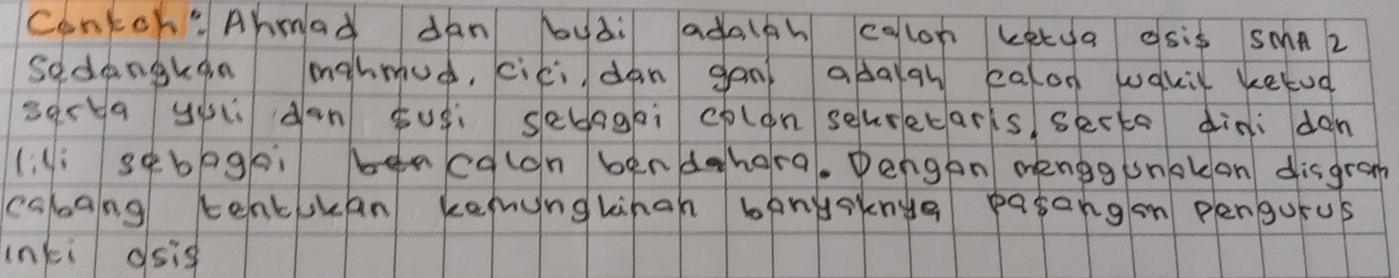 Contoh: Ahmad dan budi adalah calon ketua osis SMA 2
sedangkan mahmud, cici, dan gani adalah calon wakil ketua
serta yuli dan susi sebagai calon sekretaris, serta dini dan
lili sebagai calon bendahara. Dengan menggunakan diagram
cabang tentukan kemungkinan banyaknya pasangan pengurus
inti osis